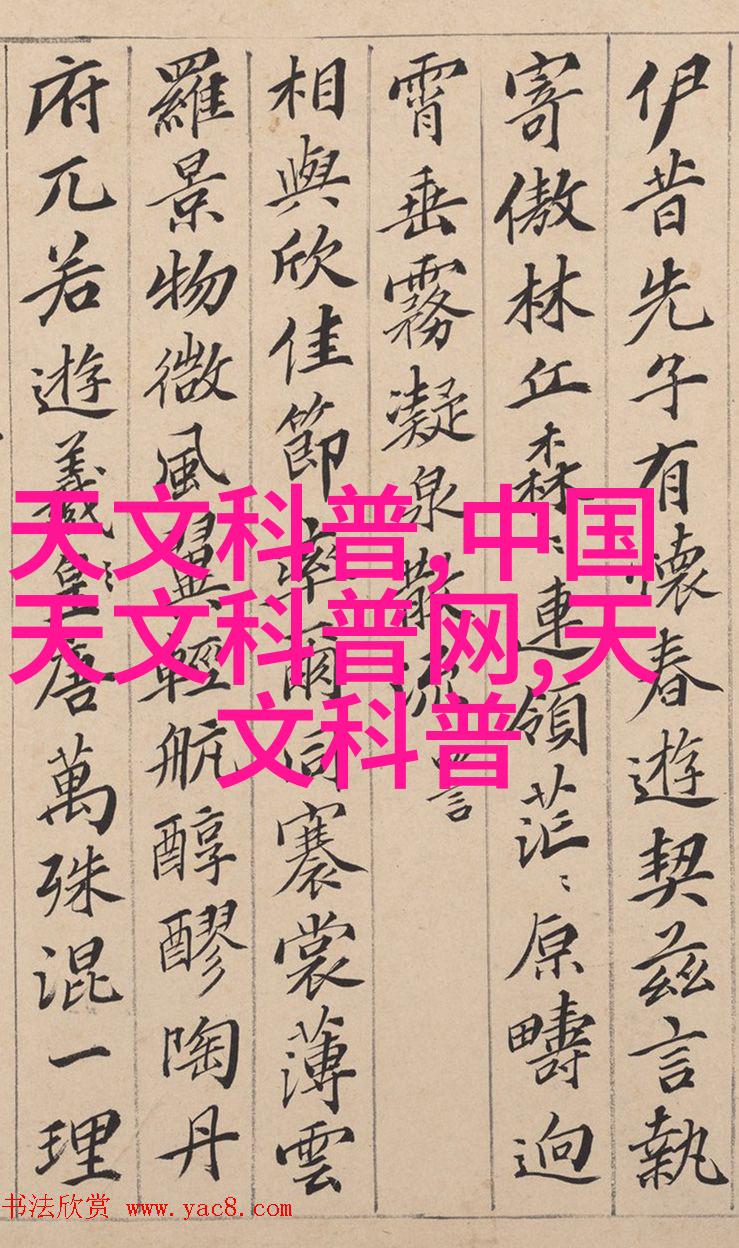 伊昔先子有懷春遊契茲言執
寄傲林丘森〻連領茫〻原疇逈
霄垂霧凝泉散流 言
相與欣佳節率爾同褰裳薄雲
羅景物微風翼輕航醇醪陶丹
府兀若遊羲皇唐萬殊混一理
天文科普,中国
天文科普网,天
文科普
书法欣赏 www.yac8.com